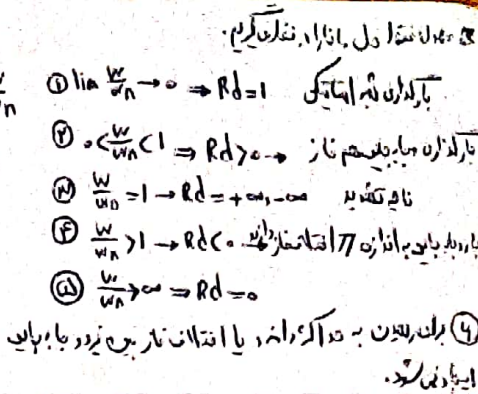 ① lim w/wn → 0 ⇒ Rd=1 بارگذاری شبه استاتیکی
② 0<w/wn<1 ⇒ Rd>0 → بارگذاری و جابجایی هم فاز
③ w/wn =1 → Rd=+∞,-∞ ناحیه تشدید
④ w/wn >1 → Rd<0 → بار و جابجایی به اندازه π اختلاف فاز دارند
⑤ w/wn→∞ ⇒ Rd=0
⑥ برای رسیدن به حداکثر دامنه یا اختلاف فاز بین نیرو و جابجایی
ایجاد نمی شود.